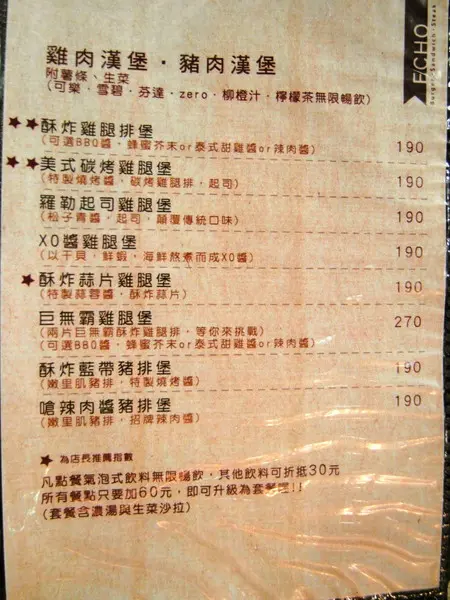 ECHO
Burger Sandwich Steak
雞肉漢堡・豬肉漢堡
附薯條、生菜
(可樂・雪碧・芬達・zero・柳橙汁・檸檬茶無限暢飲)
★★酥炸雞腿排堡 190
(可選BBQ醬、蜂蜜芥末or泰式甜雞醬or辣肉醬)
★★美式碳烤雞腿堡 190
(特製燒烤醬，碳烤雞腿排，起司)
羅勒起司雞腿堡 190
(松子青醬，起司，顛覆傳統口味)
XO醬雞腿堡 190
(以干貝，鮮蝦，海鮮熬煮而成XO醬)
★酥炸蒜片雞腿堡 190
(特製蒜蓉醬，酥炸蒜片)
巨無霸雞腿堡 270
(兩片巨無霸酥炸雞腿排，等你來挑戰)
(可選BBQ醬、蜂蜜芥末or泰式甜雞醬or辣肉醬)
酥炸藍帶豬排堡 190
(嫩里肌豬排，特製燒烤醬)
嗆辣肉醬豬排堡 190
(嫩里肌豬排，招牌辣肉醬)
★ 為店長推薦指數
凡點餐氣泡式飲料無限暢飲，其他飲料可折抵30元
所有餐點只要加60元，即可升級為套餐喔!!
(套餐含濃湯與生菜沙拉)